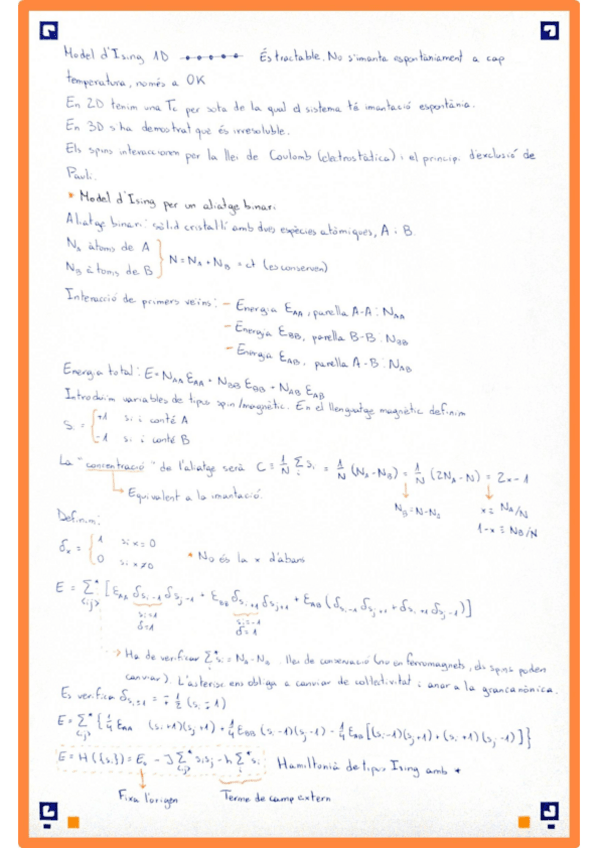 Model d'Ising 1D És tractable. No s'imanta espontàniament a cap
temperatura, només a 0K
En 2D tenim una Tc per sota de la qual el sistema té imantació espontània.
En 3D s'ha demostrat que és irresoluble.
Els spins interaccionen per la llei de Coulomb (electrostàtica) i el principi d'exclusió de
Pauli.
* Model d'Ising per un aliatge binari
Aliatge binari: sòlid cristal·lí amb dues espècies atòmiques, A i B.
N_A àtoms de A
N_B àtoms de B } N = N_A + N_B = ct (es conserven)
Interacció de primers veïns: - Energia E_AA, parella A-A: N_AA
- Energia E_BB, parella B-B: N_BB
- Energia E_AB, parella A-B: N_AB
Energia total: E = N_AA E_AA + N_BB E_BB + N_AB E_AB
Introduïm variables de tipus spin/magnètic. En el llenguatge magnètic definim
S_i = { +1 si i conté A
-1 si i conté B
La "concentració" de l'aliatge serà C = 1/N Σ_i s_i = 1/N (N_A - N_B) = 1/N (2N_A - N) = 2x - 1
Equivalent a la imantació.
N_B = N - N_A
x ≡ N_A/N
1-x ≡ N_B/N
Definim:
δ_x = { 1 si x=0
0 si x≠0
* No és la x d'abans
E = Σ*_<ij> [E_AA δ_{s_i-1} δ_{s_j-1} + E_BB δ_{s_i+1} δ_{s_j+1} + E_AB (δ_{s_i-1} δ_{s_j+1} + δ_{s_i+1} δ_{s_j-1})]
s_i=1 s_i=-1
δ=1 δ=1
Ha de verificar Σ*_i s_i = N_A - N_B. Llei de conservació (no en ferromagnets, els spins poden
canviar). L'asterisc ens obliga a canviar de col·lectivitat i anar a la grancanònica.
Es verifica δ_{s_i±1} = ∓ 1/2 (s_i ∓ 1)
E = Σ*_<ij> { 1/4 E_AA (s_i+1)(s_j+1) + 1/4 E_BB (s_i-1)(s_j-1) - 1/4 E_AB [(s_i-1)(s_j+1) + (s_i+1)(s_j-1)] }
E = H({s_i}) = E_0 - J Σ*_<ij> s_i s_j - h Σ*_i s_i Hamiltonià de tipus Ising amb *
Fixa l'origen Terme de camp extern